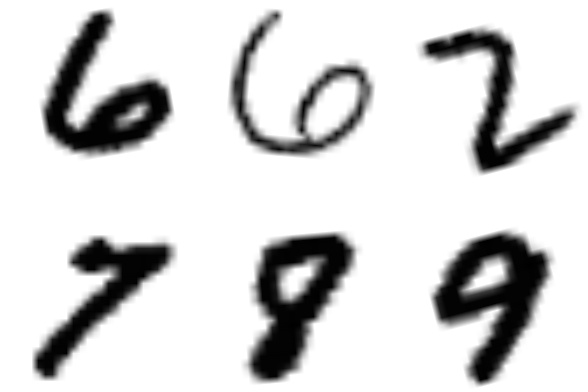 6 6 2
7 8 9